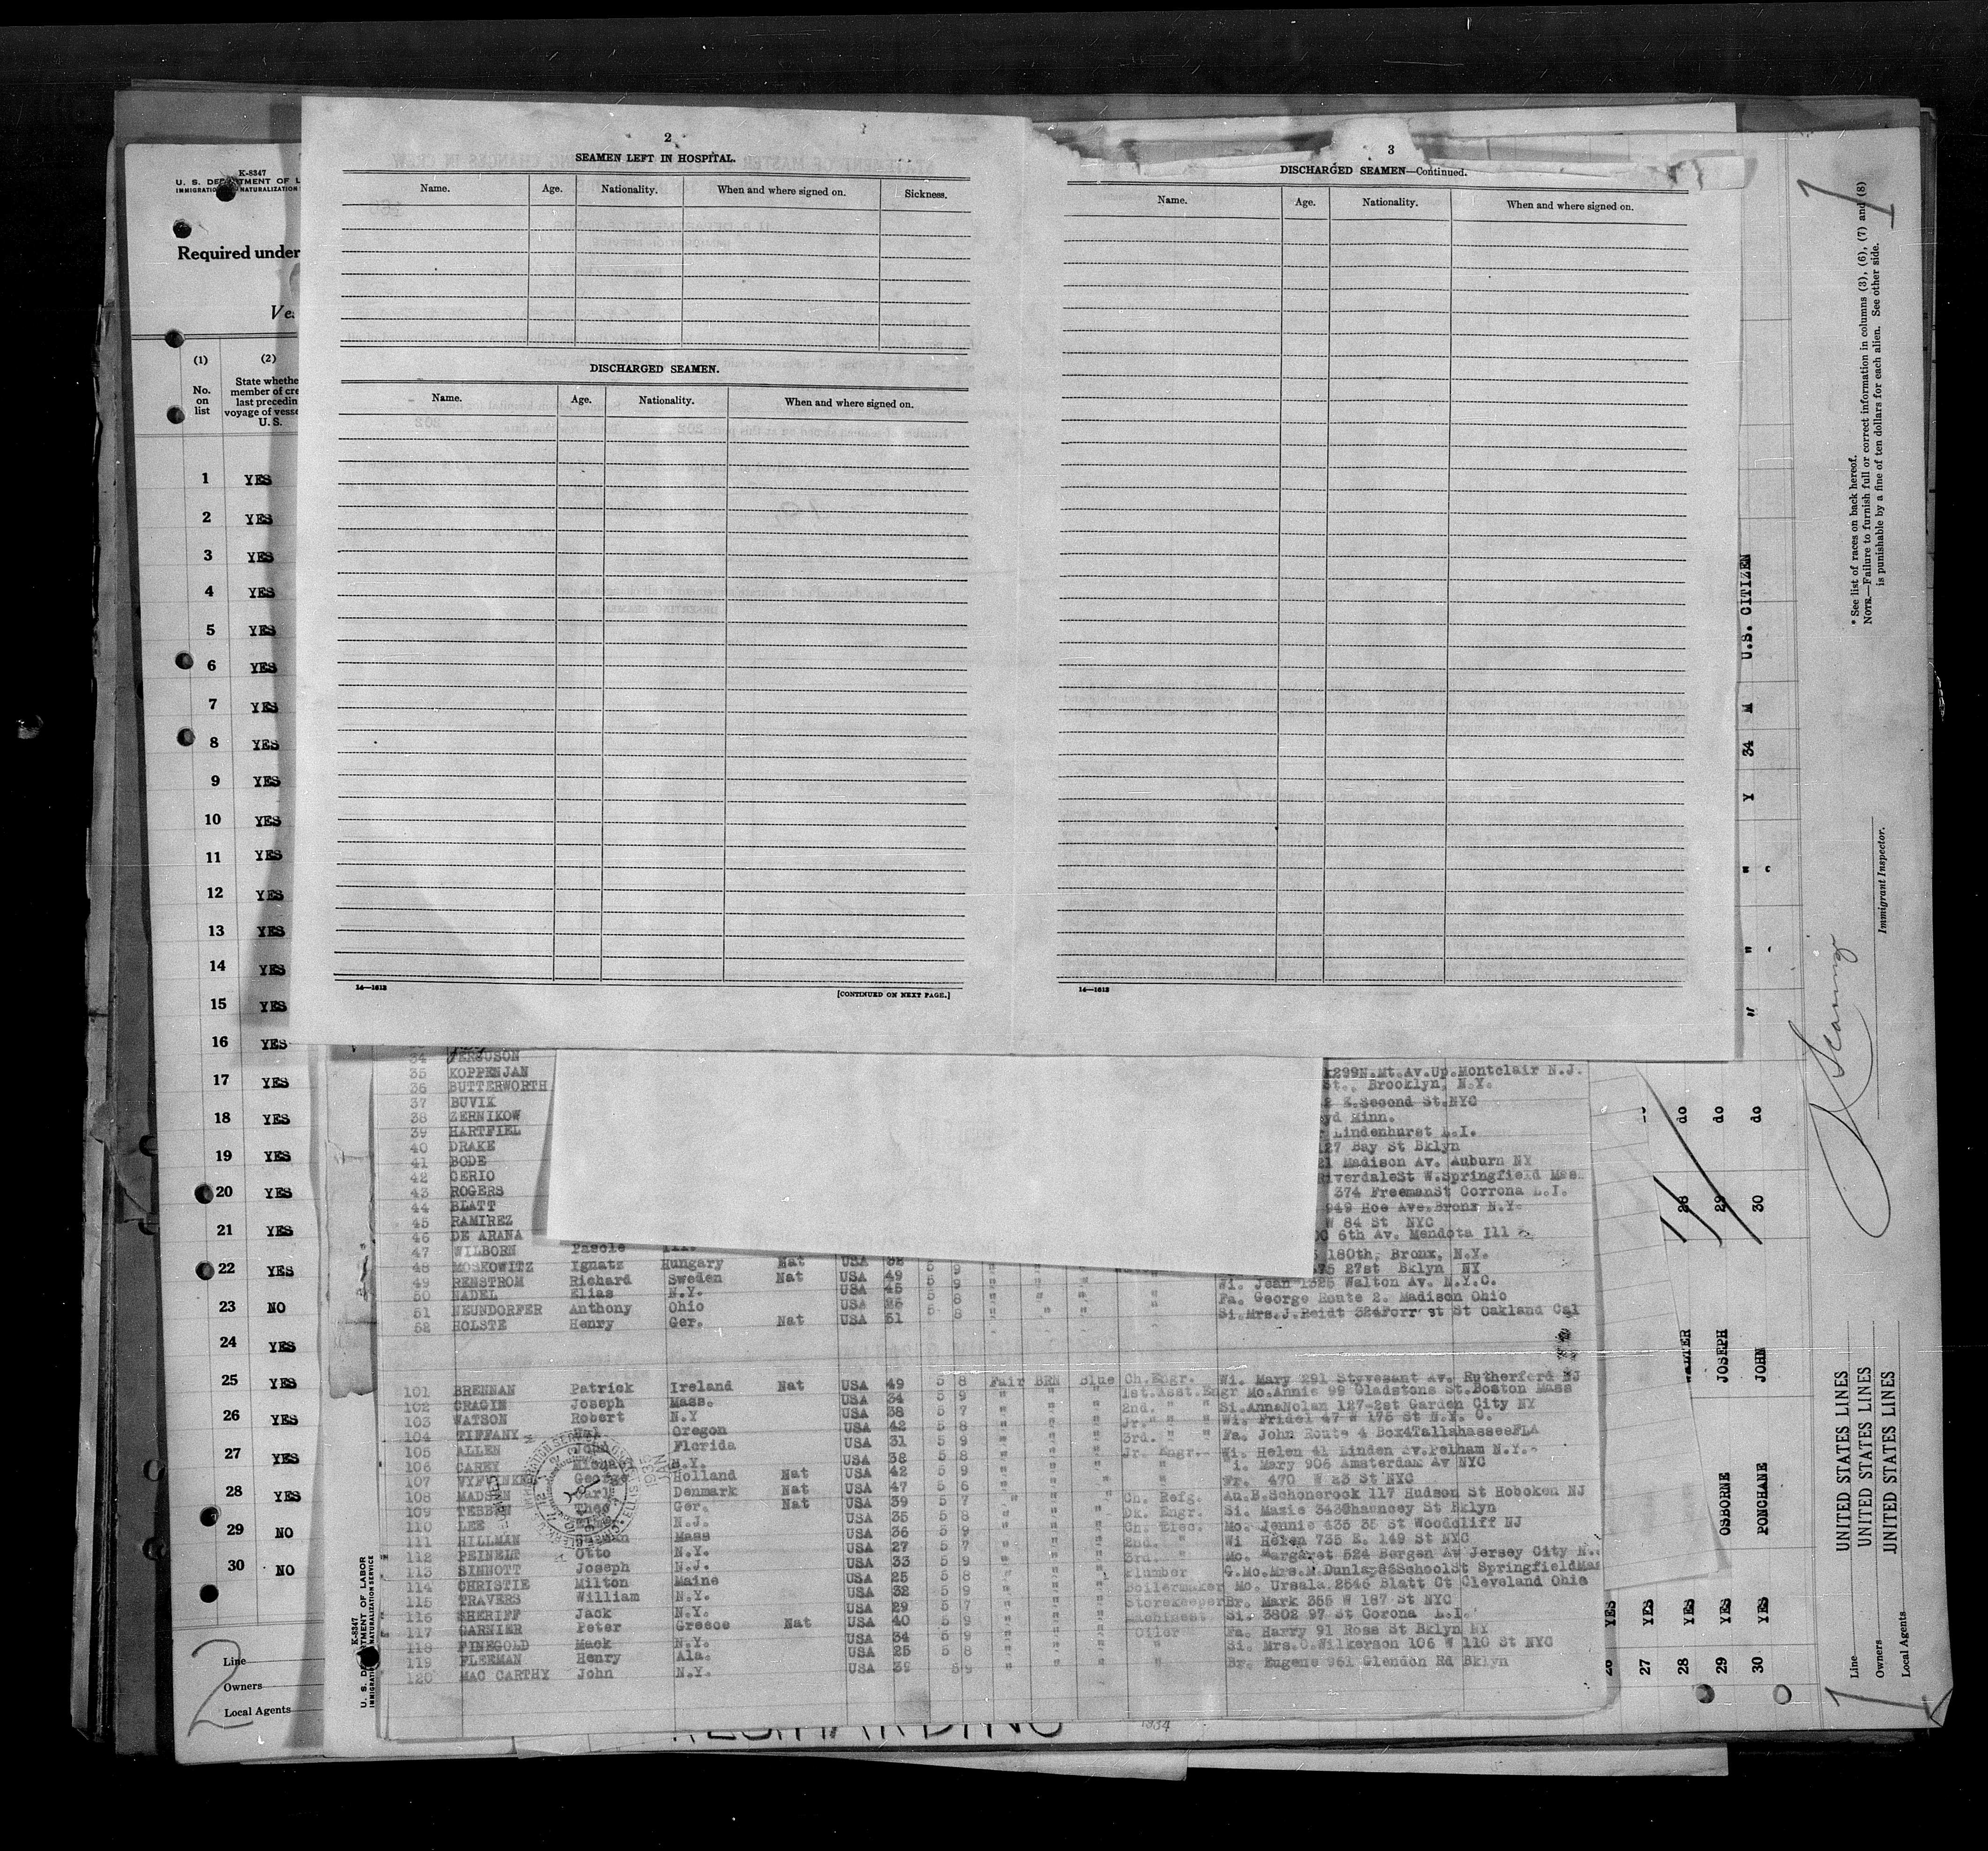 2
SEAMEN LEFT IN HOSPITAL.
Name. Age. Nationality. When and where signed on. Sickness.
DISCHARGED SEAMEN.
Name. Age. Nationality. When and where signed on.
14—1613 [CONTINUED ON NEXT PAGE.]
3
DISCHARGED SEAMEN—Continued.
Name. Age. Nationality. When and where signed on.
14—1613
K-8347
U. S. DEPARTMENT OF L
IMMIGRATION NATURALIZATION
Required under
Ve
(1) (2)
No. on list
State whethe
member of cre
last precedin
voyage of vesse
U. S.
1 YES
2 YES
3 YES
4 YES
5 YES
6 YES
7 YES
8 YES
9 YES
10 YES
11 YES
12 YES
13 YES
14 YES
15 YES
16 YES
17 YES
18 YES
19 YES
20 YES
21 YES
22 YES
23 NO
24 YES
25 YES
26 YES
27 YES
28 YES
29 NO
30 NO
2
Line
Owners
Local Agents
34 FERGUSON
35 KOPPENJAN 299N.Mt.Av.Up.Montclair N.J.
36 BUTTERWORTH St., Brooklyn, N.Y.
37 BUVIK E.Second St.NYC
38 ZERNIKOW yd Minn.
39 HARTFIEL Lindenhurst L.I.
40 DRAKE 127 Bay St Bklyn
41 BODE 21 Madison Av. Auburn NY
42 CERIO RiverdaleSt W.Springfield Mas.
43 ROGERS 374 FreemanSt Corrona L.I.
44 BLATT 949 Hoe Ave.Bronx N.Y.
45 RAMIREZ W 84 St NYC
46 DE ARANA 6th Av. Mendota Ill
47 WILBORN Pascle 180th, Bronx, N.Y.
48 MOSKOWITZ Ignatz Hungary Nat USA 75 27st Bklyn NY
49 RENSTROM Richard Sweden Nat USA 49 5 9 Wi. Jean 1326 Walton Av. N.Y.C.
50 NADEL Elias N.Y. USA 45 5 8 Fa. George Route 2. Madison Ohio
51 NEUNDORFER Anthony Ohio USA 25 5 8 Si.Mrs.J.Reidt 324Forrest St Oakland Cal
52 HOLSTE Henry Ger. Nat USA 51
101 BRENNAN Patrick Ireland Nat USA 49 5 8 Fair BRN Blue Ch.Engr. Wi. Mary 291 Styvesant Av. Rutherford NJ
102 CRAGIN Joseph Mass. USA 34 5 9 " " " 1st.Asst.Engr Mo.Annie 99 Gladstons St.Boston Mass
103 WATSON Robert N.Y USA 38 5 7 " " " 2nd. " " Si.AnnaNolan 127-2st Garden City NY
104 TIFFANY Oregon USA 42 5 8 " " " Jr." " " Wi. Fridel 47 W 175 St N.Y. C.
105 ALLEN John Florida USA 31 5 9 " " " 3rd. " " Fa. John Route 4 Box4TallahasseeFLA
106 CAREY Michael N.Y. USA 38 5 8 " " " Jr. Engr. Wi. Helen 41 Linden Av.Pelham N.Y.
107 George Holland Nat USA 42 5 9 " " " " i. Mary 906 Amsterdam Av NYC
108 MADSEN Carl Denmark Nat USA 47 5 6 " " " " Fr. 470 W 23 St NYC
109 TEBBEN Theo Ger. Nat USA 39 5 7 " " " Ch. Refg. Au.B.Schonerock 117 Hudson St Hoboken NJ
110 LEE N.J. USA 35 5 8 " " " Dk. Engr. Si. Mazie 343Chauncey St Bklyn
111 HILLMAN Mass USA 36 5 9 " " " Ch. Elec. Mo. Jennie 435 35 St Woodcliff NJ
112 PEINELT Otto N.Y. USA 27 5 7 " " " 2nd. " Wi Helen 735 E. 149 St NYC
113 SINNOTT Joseph N.J. USA 33 5 9 " " " 3rd. " Mo. Margaret 524 Bergen Av Jersey City
114 CHRISTIE Milton Maine USA 25 5 8 " " " Plumber G.Mo.Mrs.N.Dunlap86SchoolSt SpringfieldMas
115 TRAVERS William N.Y. USA 32 5 9 " " " Boilermaker Mo. Ursala.2546 Blatt Ct Cleveland Ohio
116 SHERIFF Jack N.Y. USA 29 5 7 " " " Storekeeper Br. Mark 355 W 187 St NYC
117 GARNIER Peter Greece Nat USA 40 5 9 " " " Machinest Si. 3802 97 St Corona L.I.
118 FINEGOLD Mack N.Y. USA 34 5 9 " " " Oiler Fa. Harry 91 Ross St Bklyn NY
119 FLEEMAN Henry Ala. USA 25 5 8 " " " " Si. Mrs.O.Wilkerson 106 W 110 St NYC
120 MAC CARTHY John N.Y. USA 39 5 9 " " " " Br. Eugene 961 Glendon Rd Bklyn
K-8347
U. S. DEPARTMENT OF LABOR
IMMIGRATION NATURALIZATION SERVICE
1934
* See list of races on back hereof.
NOTE.—Failure to furnish full or correct information in columns (3), (6), (7) and (8)
is punishable by a fine of ten dollars for each alien. See other side.
U.S. CITIZEN
34 M
Y
Immigrant Inspector.
do do do
28 29 30
JOSEPH
JOHN
OSBORNE
PONCHANE
26 YES
27 YES
28 YES
29 YES
30 YES
Line UNITED STATES LINES
Owners UNITED STATES LINES
Local Agents UNITED STATES LINES
1